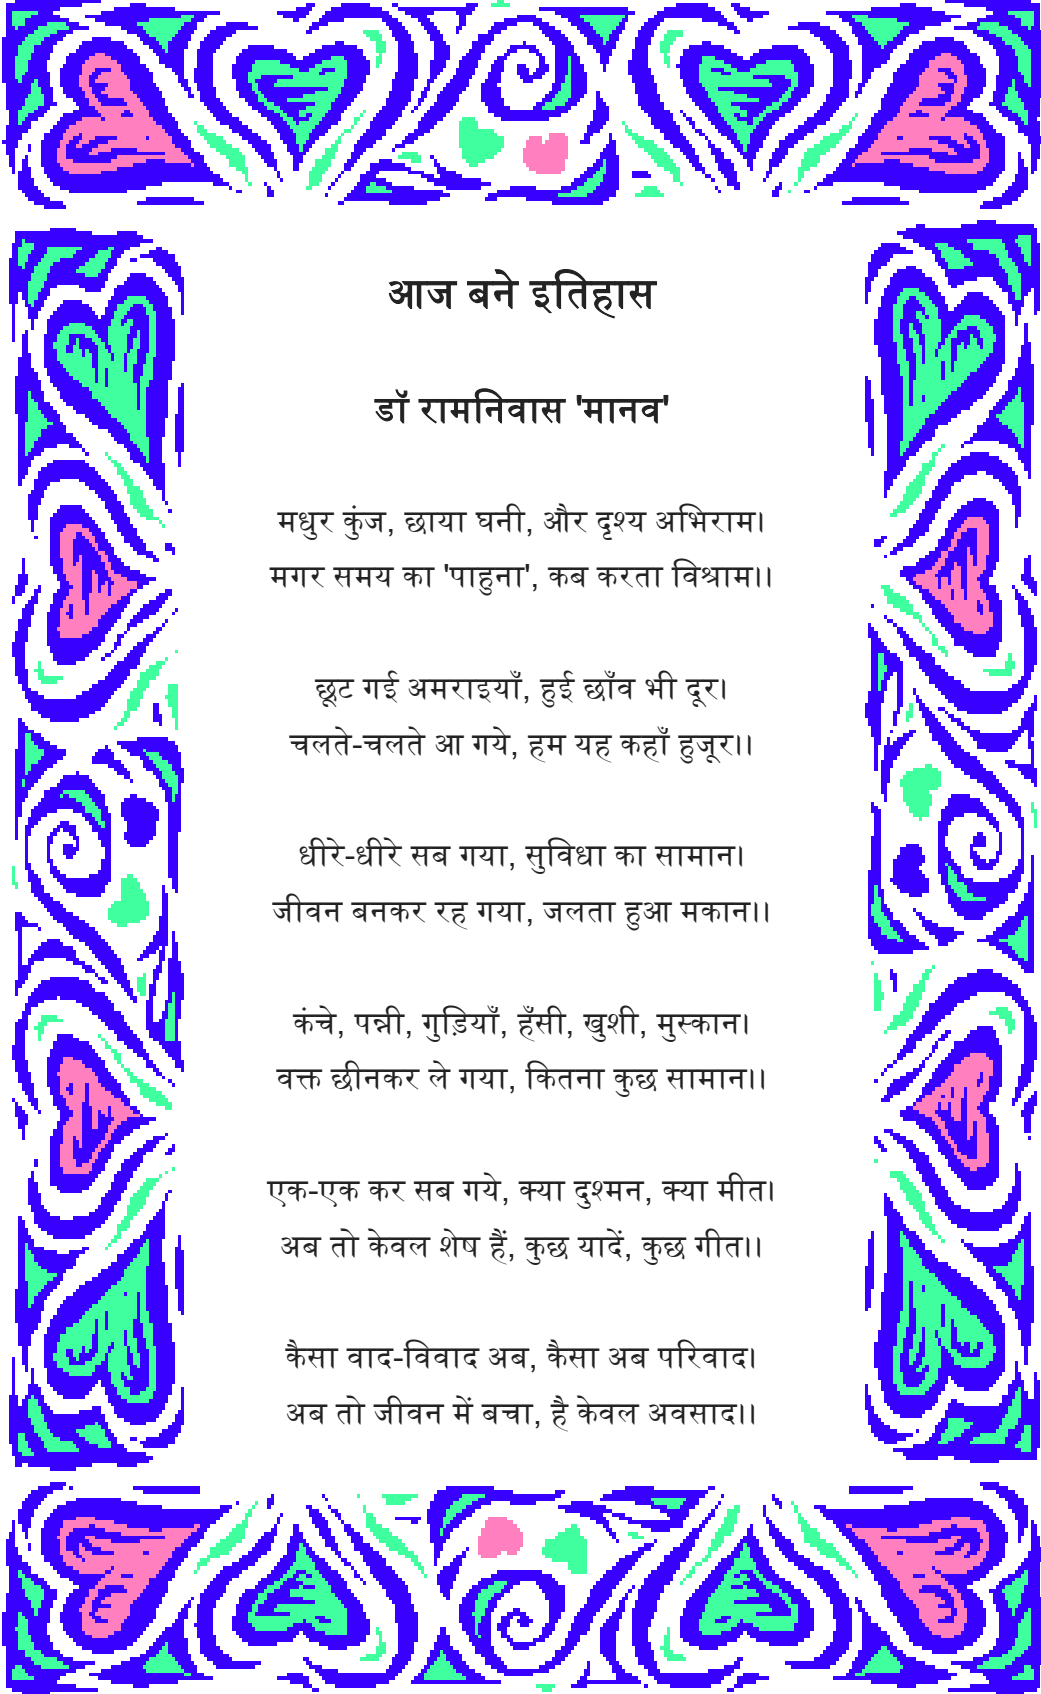 आज बने इतिहास
डॉ रामनिवास 'मानव'
मधुर कुंज, छाया घनी, और दृश्य अभिराम।
मगर समय का 'पाहुना', कब करता विश्राम।।
छूट गई अमराइयाँ, हुई छाँव भी दूर।
चलते-चलते आ गये, हम यह कहाँ हुजूर।।
धीरे-धीरे सब गया, सुविधा का सामान।
जीवन बनकर रह गया, जलता हुआ मकान।।
कंचे, पन्नी, गुड़ियाँ, हँसी, खुशी, मुस्कान।
वक्त छीनकर ले गया, कितना कुछ सामान।।
एक-एक कर सब गये, क्या दुश्मन, क्या मीत।
अब तो केवल शेष हैं, कुछ यादें, कुछ गीत।।
कैसा वाद-विवाद अब, कैसा अब परिवाद।
अब तो जीवन में बचा, है केवल अवसाद।।